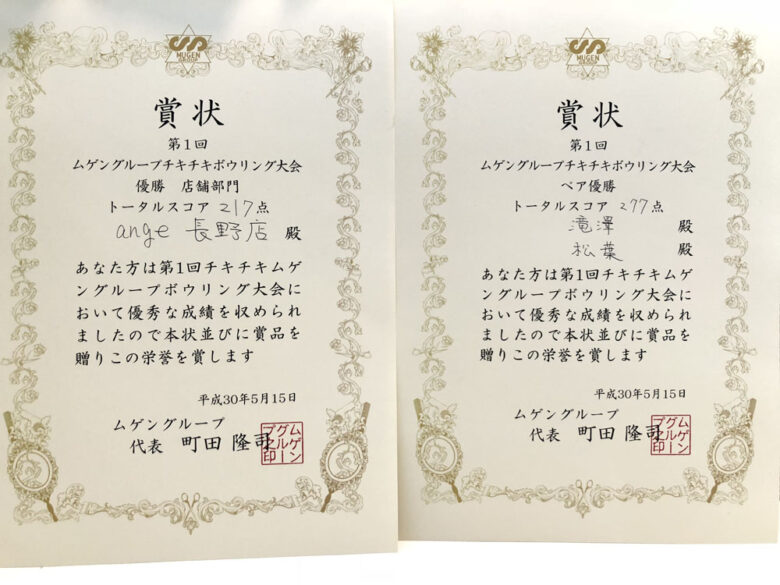 MUGEN
賞状
第1回
ムゲングループチキチキボウリング大会
優勝 店舗部門
トータルスコア 217点
ange 長野店 殿
あなた方は第1回チキチキムゲ
ングループボウリング大会に
おいて優秀な成績を収められ
ましたので本状並びに賞品を
贈りこの栄誉を賞します
平成30年5月15日
ムゲングループ
代表 町田 隆司
ムゲン
グルー
プ之印
MUGEN
賞状
第1回
ムゲングループチキチキボウリング大会
ペア優勝
トータルスコア 277点
滝澤 殿
松葉 殿
あなた方は第1回チキチキムゲ
ングループボウリング大会に
おいて優秀な成績を収められ
ましたので本状並びに賞品を
贈りこの栄誉を賞します
平成30年5月15日
ムゲングループ
代表 町田 隆司
ムゲン
グルー
プ之印